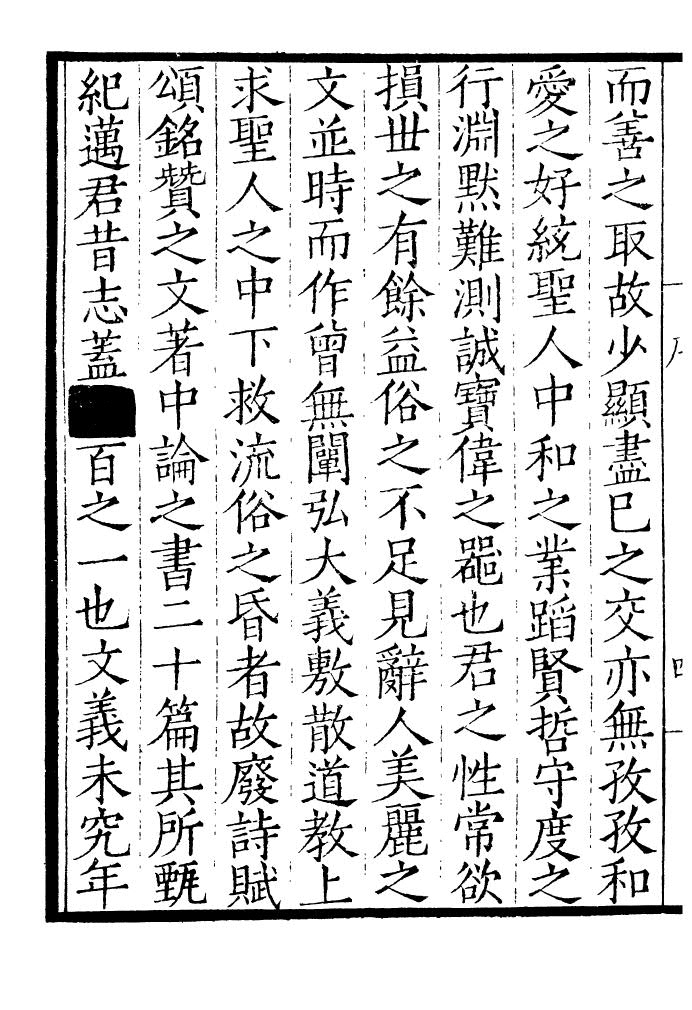 而善之取故少顯盡巳之交亦無孜孜和
愛之好統聖人中和之業蹈賢哲守度之
行淵默難測誠寶偉之器也君之性常欲
損丗之有餘益俗之不足見辭人美麗之
文並時而作曾無闡弘大義敷散道教上
求聖人之中下救流俗之昏者故廢詩賦
頌銘贊之文著中論之書二十篇其所甄
紀邁君昔志蓋百之一也文義未究年